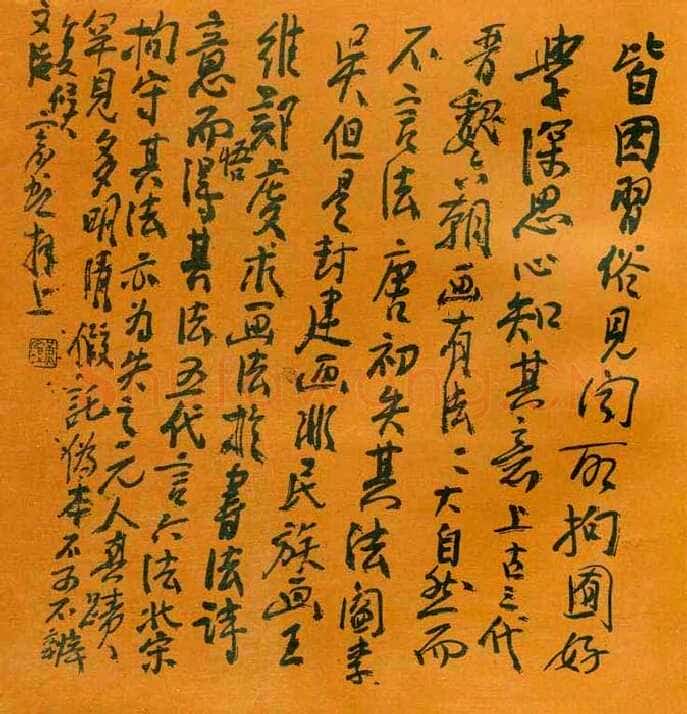 皆因習俗見闻所拘囿好
學深思心知其意上古三代
晋魏六朝画有法二大自然而
不言法唐初失其法閻李
吳但是封建画非民族画王
維鄭虔求画法於書法詩
意而悟得其法五代言六法北宋
拘守其法亦为失之元人真蹟
罕見多明清假託偽本不可不辨
賓虹拜上